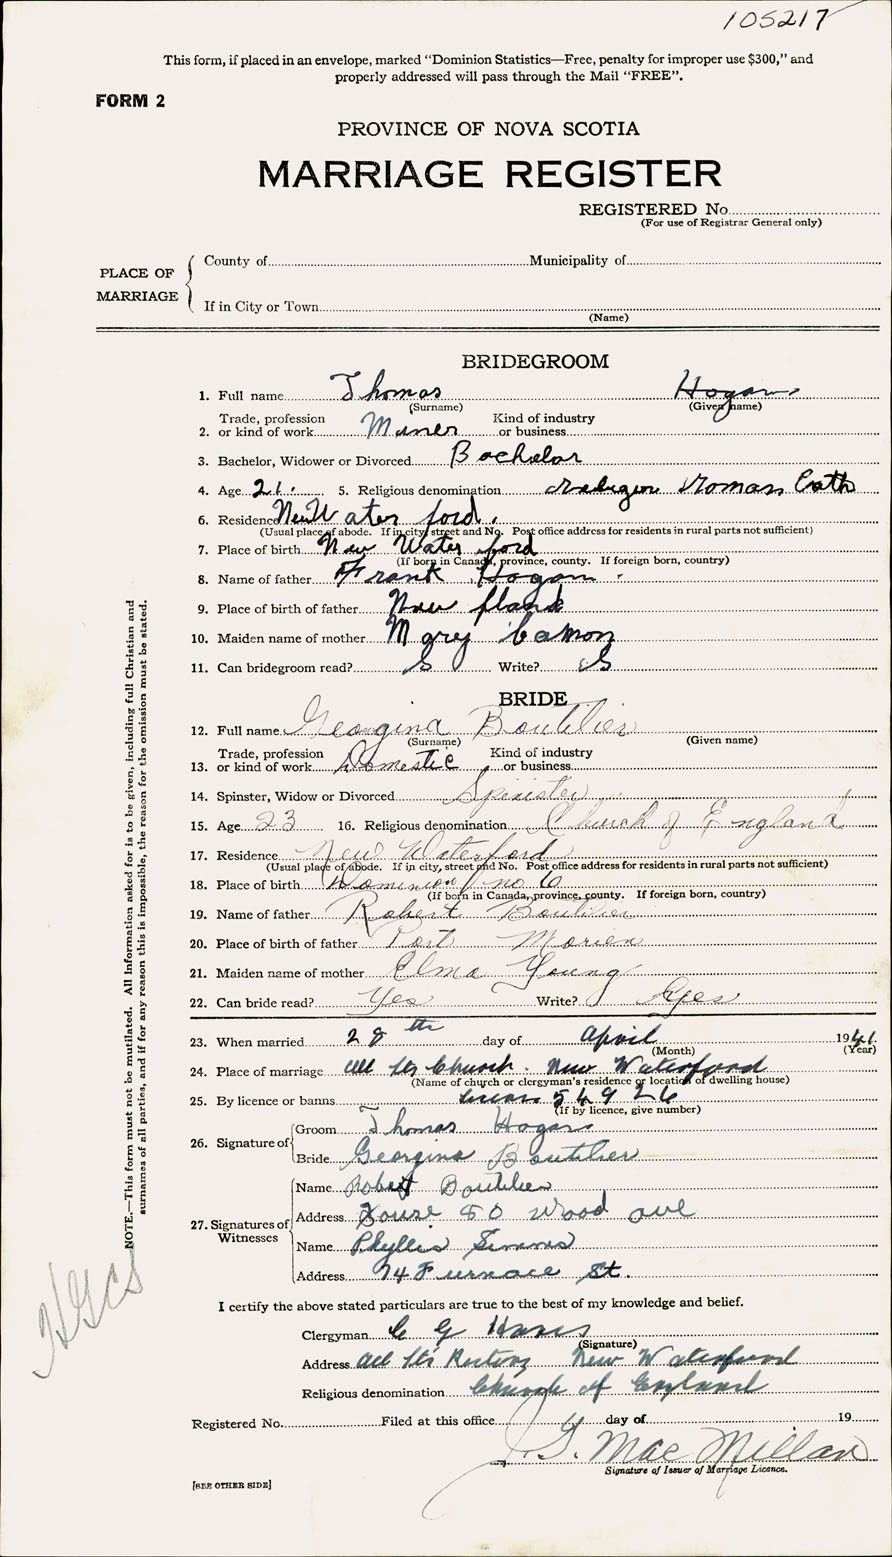 105217
This form, if placed in an envelope, marked "Dominion Statistics—Free, penalty for improper use $300," and
properly addressed will pass through the Mail "FREE".
FORM 2
PROVINCE OF NOVA SCOTIA
MARRIAGE REGISTER
REGISTERED No.
(For use of Registrar General only)
PLACE OF MARRIAGE
County of Municipality of
If in City or Town
(Name)
BRIDEGROOM
1. Full name Thomas Hogan
(Surname) (Given name)
2. Trade, profession or kind of work Muner Kind of industry or business
3. Bachelor, Widower or Divorced Bachelor
4. Age 21. 5. Religious denomination Roman Cath
6. Residence New Water ford.
(Usual place of abode. If in city, street and No. Post office address for residents in rural parts not sufficient)
7. Place of birth New Water ford
(If born in Canada, province, county. If foreign born, country)
8. Name of father Frank Hogan
9. Place of birth of father New fland
10. Maiden name of mother Mary
11. Can bridegroom read? S Write? S
BRIDE
12. Full name Georgina Boutilier
(Surname) (Given name)
13. Trade, profession or kind of work Domestic Kind of industry or business
14. Spinster, Widow or Divorced Spinister
15. Age 23 16. Religious denomination Church of England
17. Residence New Waterford
(Usual place of abode. If in city, street and No. Post office address for residents in rural parts not sufficient)
18. Place of birth Dominion no 6
(If born in Canada, province, county. If foreign born, country)
19. Name of father Robert Boutilier
20. Place of birth of father Port Morien
21. Maiden name of mother Elma Young
22. Can bride read? Yes Write? Yes
23. When married 28th day of April 1941
(Month) (Year)
24. Place of marriage All Sts Church. New Waterford
(Name of church or clergyman's residence or location of dwelling house)
25. By licence or banns 54926
(If by licence, give number)
26. Signature of Groom Thomas Hogan
Bride Georgina Boutilier
27. Signatures of Witnesses
Name Robert Boutilier
Address House 50 Wood ave
Name Phyllis Simms
Address 74 Furnace St.
I certify the above stated particulars are true to the best of my knowledge and belief.
Clergyman C G
(Signature)
Address All Sts Rectory New Waterford
Religious denomination Church of England
Registered No. Filed at this office day of 19
G. MacMillan
Signature of Issuer of Marriage Licence.
[SEE OTHER SIDE]
NOTE.—This form must not be mutilated. All Information asked for is to be given, including full Christian and
surnames of all parties, and if for any reason this is impossible, the reason for the omission must be stated.